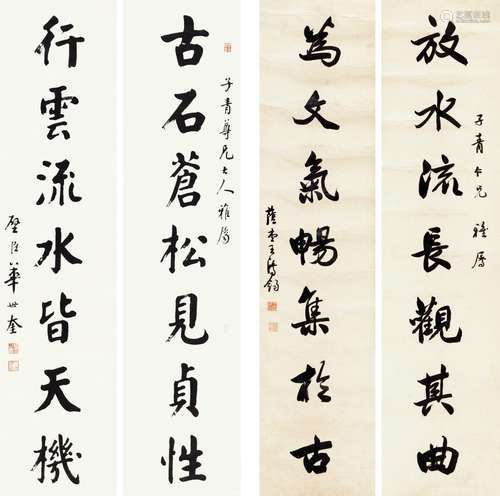 放水流長觀其曲
子青仁兄雅屬
為文氣暢集於古
古石蒼松見貞性
子青尊兄大人雅屬
行雲流水皆天機
壁臣華世奎